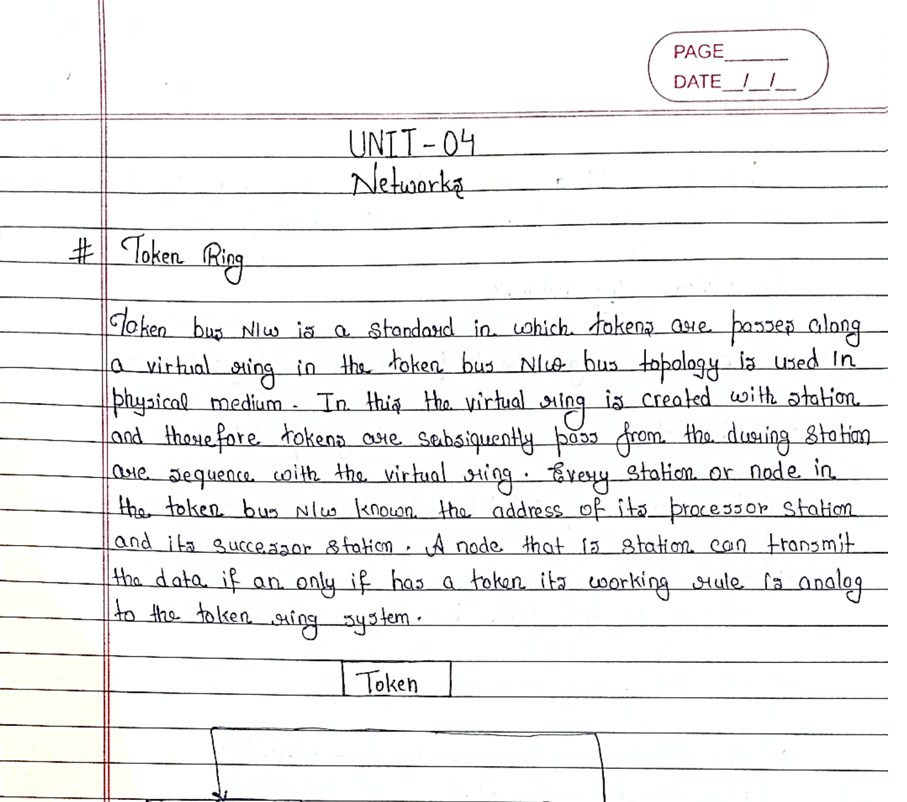 PAGE______
DATE__/__/__
UNIT-04
Networks
# Token Ring
Token bus N/w is a standard in which tokens are passes along
a virtual ring in the token bus N/w bus topology is used in
physical medium. In this the virtual ring is created with station
and therefore tokens are subsiquently pass from the during station
are sequence with the virtual ring. Every station or node in
the token bus N/w known the address of its processor station
and its successor station. A node that is station can transmit
the data if an only if has a token its working rule is analog
to the token ring system.
Token